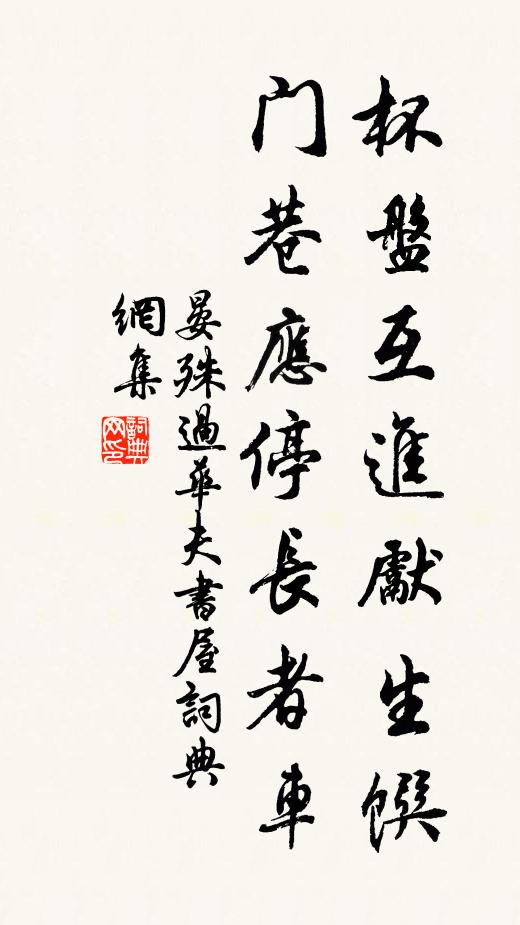 杯盤互進獻生饌
门巷應停長者車
晏殊過華夫書屋詞典
網集
詞典網印